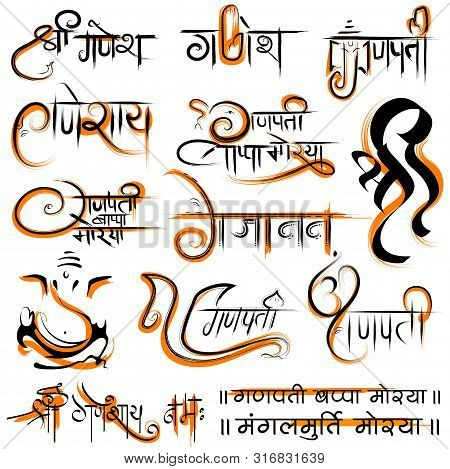 श्री गणेश
गणेश
गणपती
गणेशाय
गणपती
बाप्पा मोरया
गणपती
बाप्पा
मोरया
गजानन
गणपती
गणपती
श्री गणेशाय नमः
॥ गणपती बप्पा मोरया ॥
॥ मंगलमुर्ति मोरया ॥
BIGSTOCK
Image ID: 316831639
bigstock.com